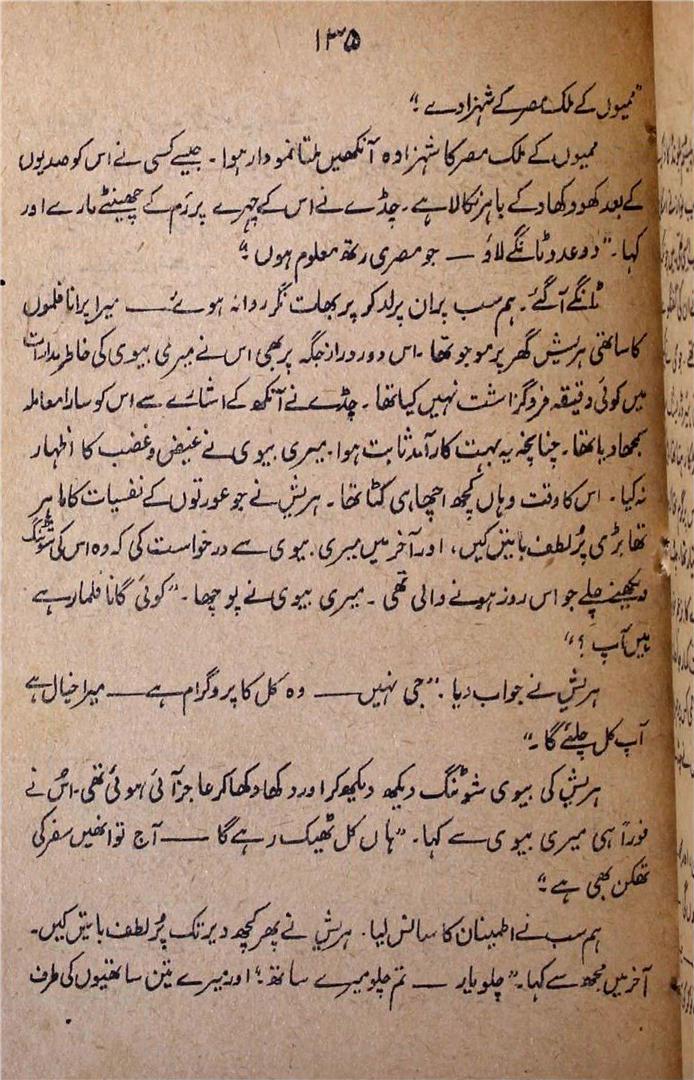 ۱۳۵
”ممیوں کے ملک مصر کے شہزادے ؛“
ممیوں کے ملک مصر کا شہزادہ آنکھیں ملتا نمودار ہوا۔ جیسے کسی نے اس کو صدیوں
کے بعد کھود کھاد کے باہر نکالا ہے۔ چڈے نے اس کے چہرے پر رَم کے چھینٹے مارے اور
کہا۔ ”دو عدد ٹانگے لاؤ — جو مصری رتھ معلوم ہوں ؛“
ٹانگے آ گئے۔ ہم سب ان پر لد کر پربھات نگر روانہ ہوئے — میرا پرانا فلموں
کا ساتھی ہریش گھر پر موجود تھا۔ اس دور دراز جگہ پر بھی اس نے میری بیوی کی خاطر مدارات
میں کوئی دقیقہ فروگزاشت نہیں کیا تھا۔ چڈے نے آنکھ کے اشارے سے اس کو سارا معاملہ
سمجھا دیا تھا۔ چنانچہ یہ بہت کارآمد ثابت ہوا۔ میری بیوی نے غیض و غضب کا اظہار
نہ کیا۔ اس کا وقت وہاں کچھ اچھا ہی کٹا تھا۔ ہریش نے جو عورتوں کے نفسیات کا ماہر
تھا بڑی پُر لطف باتیں کیں، اور آخر میں میری بیوی سے درخواست کی کہ وہ اس کی شوٹنگ
دیکھنے چلے جو اس روز ہونے والی تھی۔ میری بیوی نے پوچھا۔ ”کوئی گانا فلما رہے
ہیں آپ ؟“
ہریش نے جواب دیا۔ ”جی نہیں — وہ کل کا پروگرام ہے — میرا خیال ہے
آپ کل چلئے گا۔“
ہریش کی بیوی شوٹنگ دیکھ دیکھ کر اور دکھا دکھا کر عاجز آئی ہوئی تھی۔ اُس نے
فوراً ہی میری بیوی سے کہا۔ ”ہاں کل ٹھیک رہے گا — آج تو انھیں سفر کی
تھکن بھی ہے ؛“
ہم سب نے اطمینان کا سانس لیا۔ ہریش نے پھر کچھ دیر تک پُر لطف باتیں کیں۔
آخر میں مجھ سے کہا۔ ”چلو یار — تم چلو میرے ساتھ ؛“ اور میرے تین ساتھیوں کی طرف